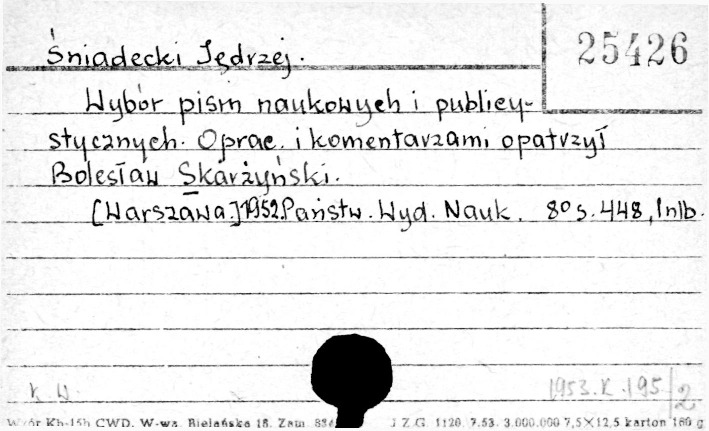 Śniadecki Jędrzej.
25426
Wybór pism naukowych i publicy-
stycznych. Oprac. i komentarzami opatrzył
Bolesław Skarżyński.
[Warszawa.]1952.Państw. Wyd. Nauk. 8° s. 448, 1nlb.
K. W.
1953. K. 195/2
Wzór Kb-15h CWD. W-wa, Bielańska 18. Zam. J Z.G. 1120 7.53. 3.000.000 7,5×12,5 karton 160 g